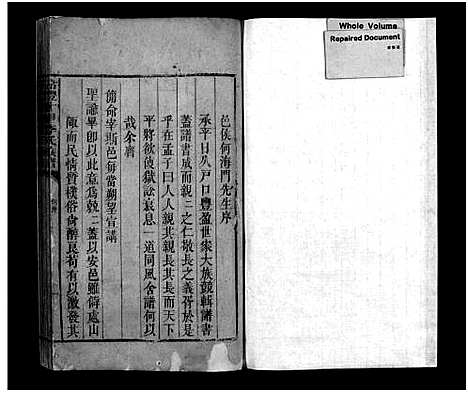 Whole Volume
Repaired Document
邑侯何海門先生序
承平日久戶口豐盈世家大族競輯譜書
蓋譜書成而親親之仁敬長之義胥於是
乎在孟子曰人人親其親長其長而天下
平將欲使獄訟衰息一道同風舍譜何以
哉余膺
簡命宰斯邑每當朔望宣講
聖諭畢即以此意為兢兢蓋以安邑雖僻處山
陬而民情質樸俗尚醇良苟有以激發其